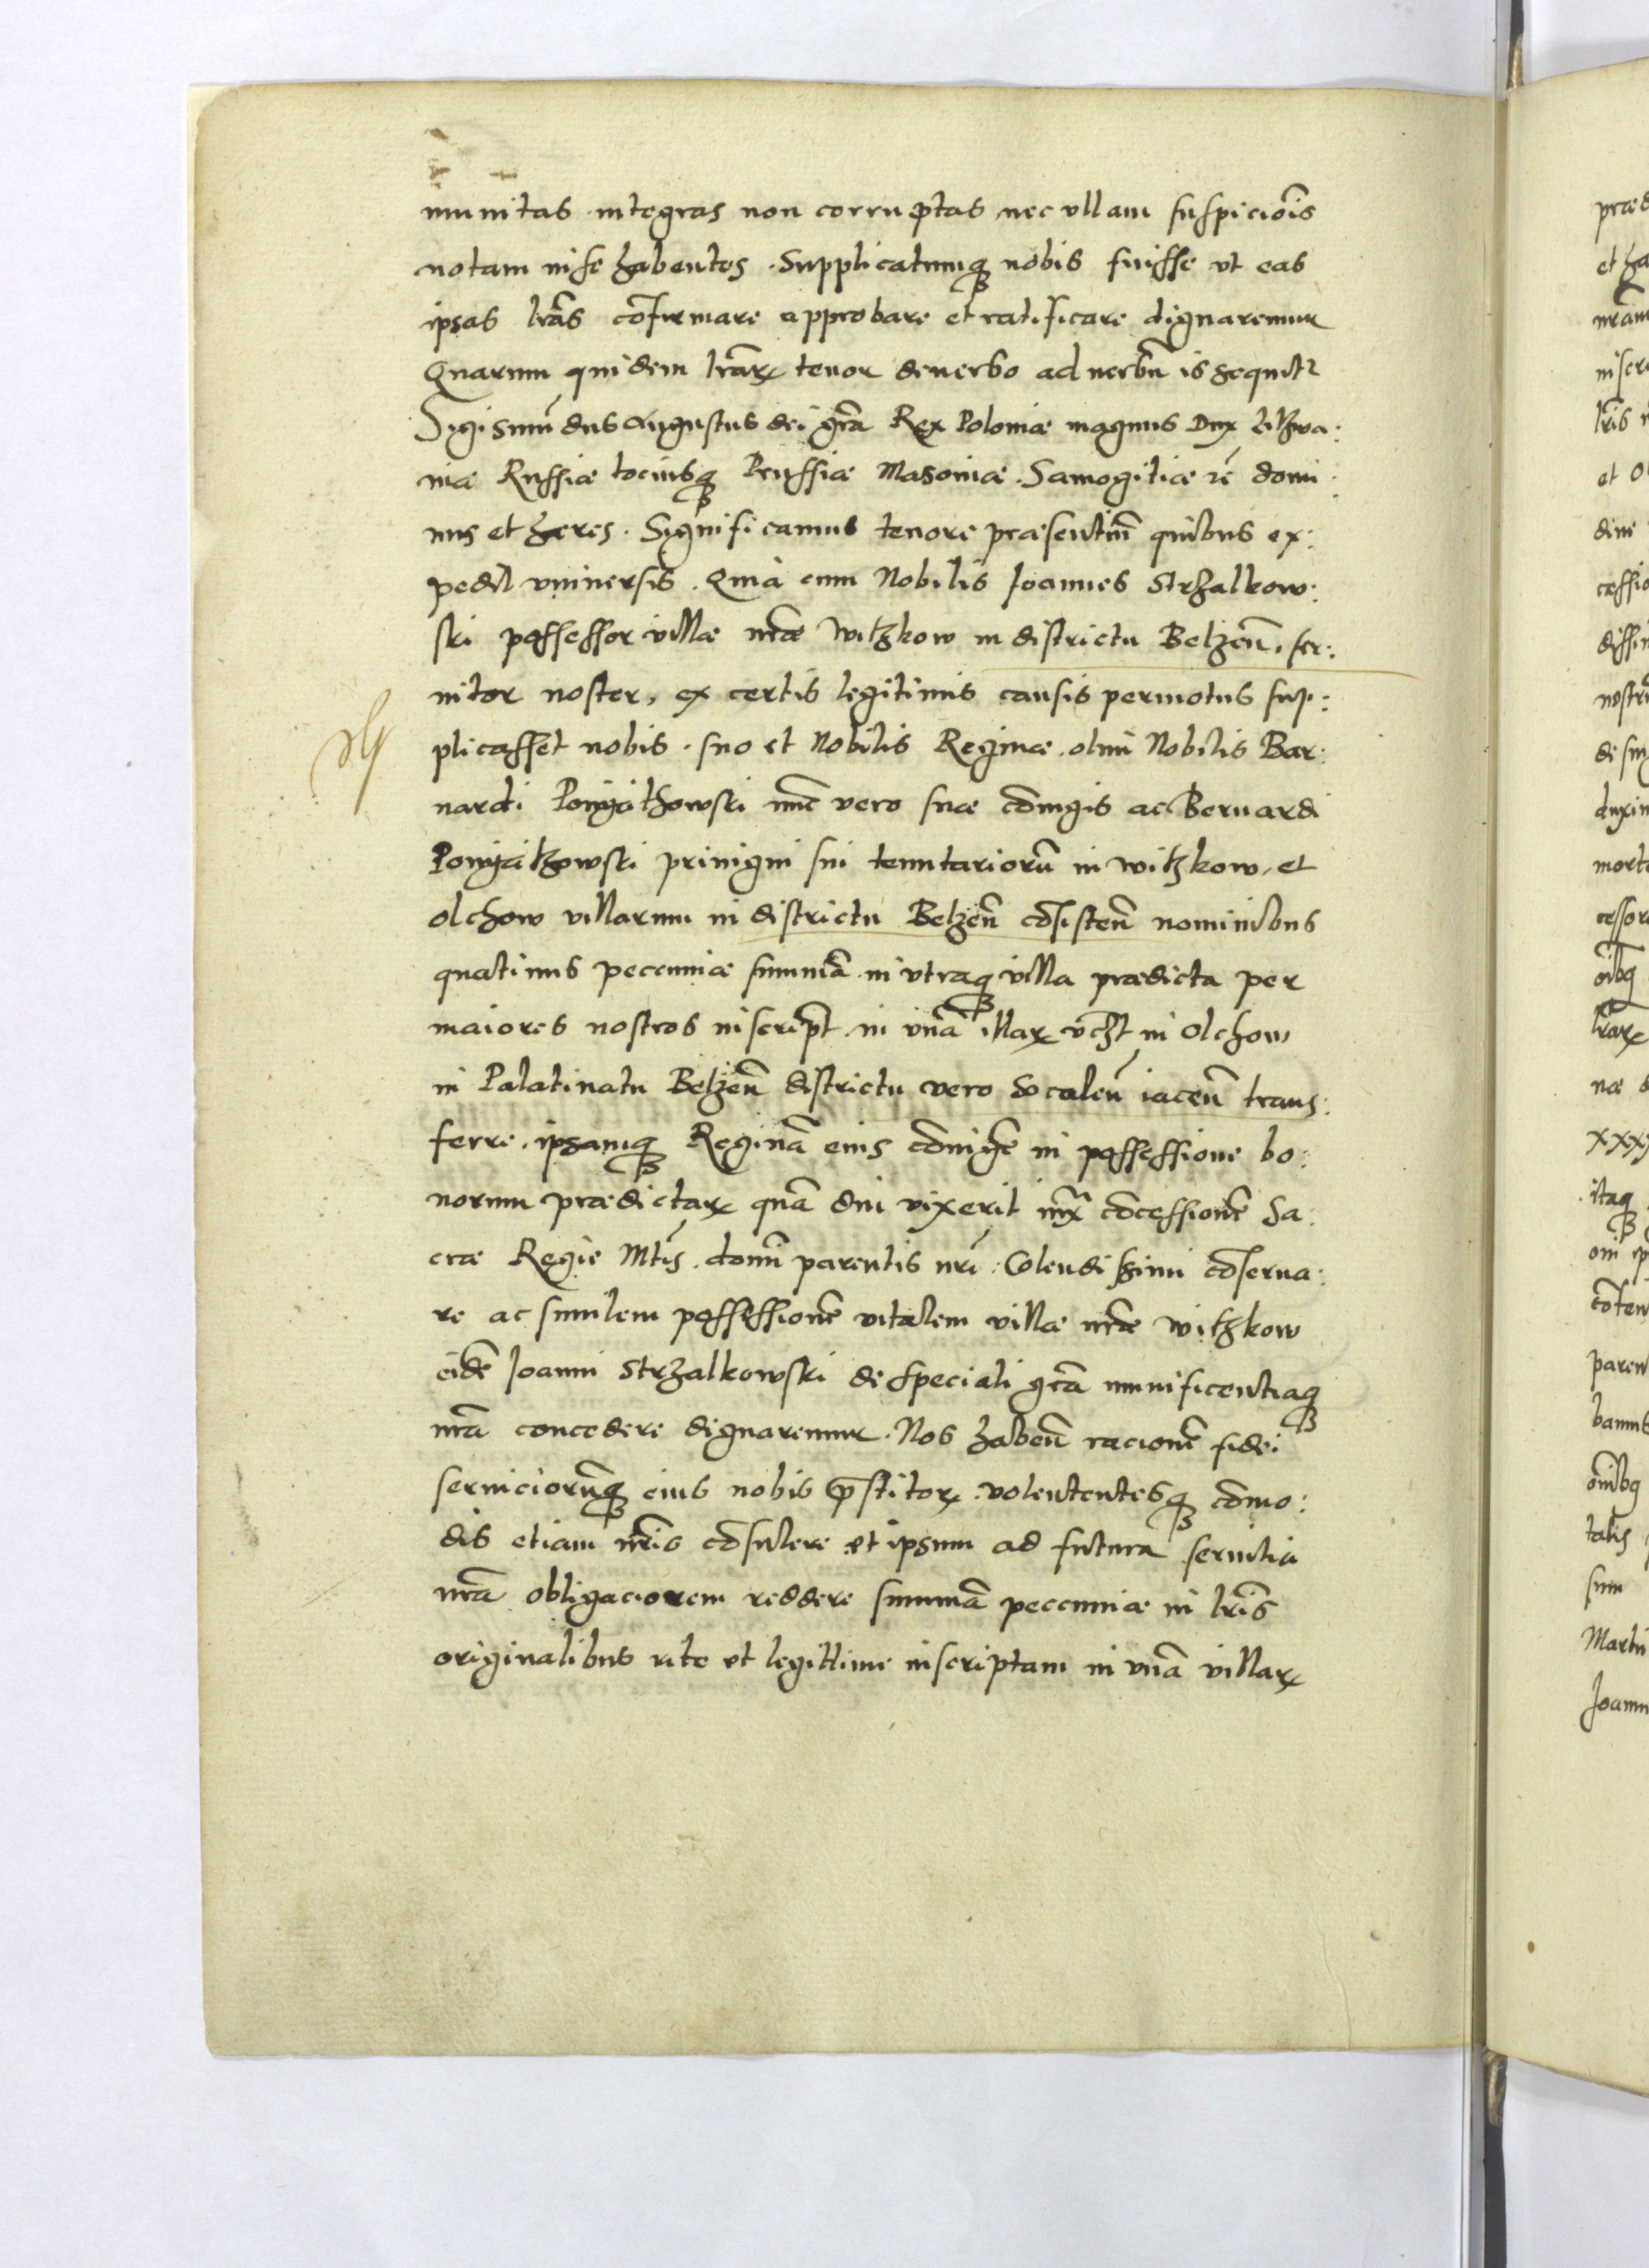 munitas integras non corruptas nec vllam suspiciōis
notam in se habentes. Supplicatumq nobis fuisse vt eas
ipsas lrās cōfirmare approbare et ratificare dignaremur
Quarum quidem lrāꝝ tenor de verbo ad verbū is sequit̃
Sigismūdus Augustus dei grā Rex Poloniæ magnus Dux Lithwa:
niæ Russiæ tociusq Prussiæ Masoniæ. Samogitiæ rē domi:
nus et heres. Significamus tenore præsentiū quibus ex:
pedit vniuersis. Quia cum Nobilis Joannes Strzalkow:
ski possessor villæ nrāe Witzkow in districtu Belzeñ. ser:
uitor noster, ex certis legitimis causis permotus sup:
plicasset nobis. suo et Nobilis Reginæ. olim Nobilis Bar:
nardi Poniyathowski nūc vero suæ cōiugis ac Bernardi
Poniyathowski priuigni sui tenutariorū in witzkow, et
olchow villarum in districtu Belzeñ cōsisteñ nominibus
quatinus peccuniæ summā in vtraq villa prædicta per
maiores nostros inscript̄ in vnā illaꝝ vcz̄t in Olchow
in Palatinatu Belzeñ districtu vero Socaleñ iaceñ trans:
ferre. ipsamq Reginā eius cōiugē in possessione bo:
norum prædictaꝝ quā diu vixerit iux̄ cōcessionē Sa:
cræ Regie Mtis. domī parentis nrī. Colendissimi cōserua:
re ac similem possessionē vitalem villæ nrāe witzkow
eidē Joanni Strzalkowski de speciali grā munificentiaq
nrā concedere dignaremur. Nos habeñ racionē fidei
seruiciorūq eius nobis p̄stitoꝝ. volententesq cōmo:
dis etiam nrīs cōsulere et ipsum ad futura seruitia
nrā obligaciorem reddere summā peccuniæ in lrīs
originalibus rite et legittime inscriptam in vnā villaꝝ